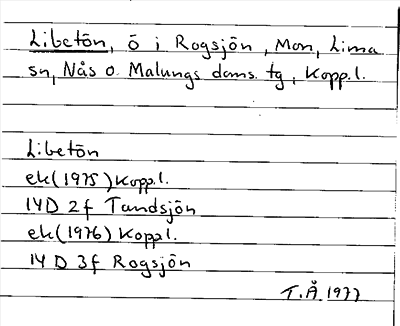 Libetön, ö i Rogsjön, Mon, Lima
sn, Nås o. Malungs doms. tg, Kopp.l.
Libetön
ek(1975) Kopp.l.
14D 2f Tandsjön
ek(1976) Koppl.
14D 3f Rogsjön
T.Å 1977